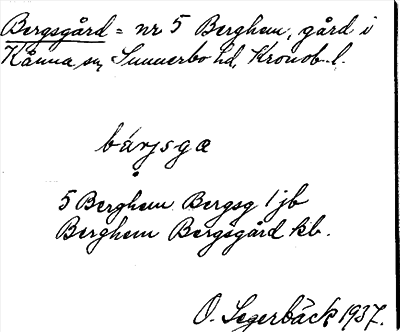 Bergsgård = nr 5 Berghem, gård i
Kånna sn, Sunnerbo hd, Kronob. l.
bárjsgæ
5 Berghem Bergsg 1 jb
Berghem Bergsgård kb.
O. Segerbäck 1937.